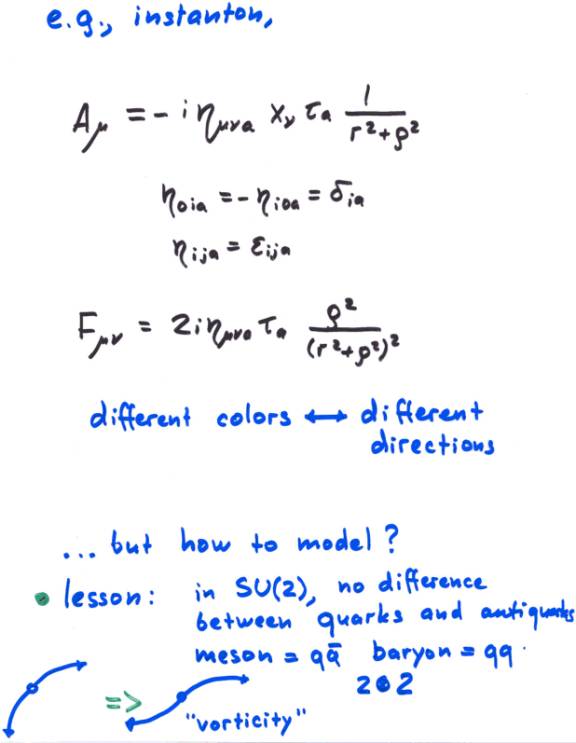 e.g., instanton,
A_μ = - i η_μνa x_ν τ_a 1/(r²+ρ²)
η_0ia = - η_i0a = δ_ia
η_ija = ε_ija
F_μν = 2i η_μνa τ_a ρ²/(r²+ρ²)²
different colors ↔ different
directions
... but how to model?
• lesson: in SU(2), no difference
between quarks and antiquarks
meson = qq̄ baryon = qq
2•2
=>
"vorticity"